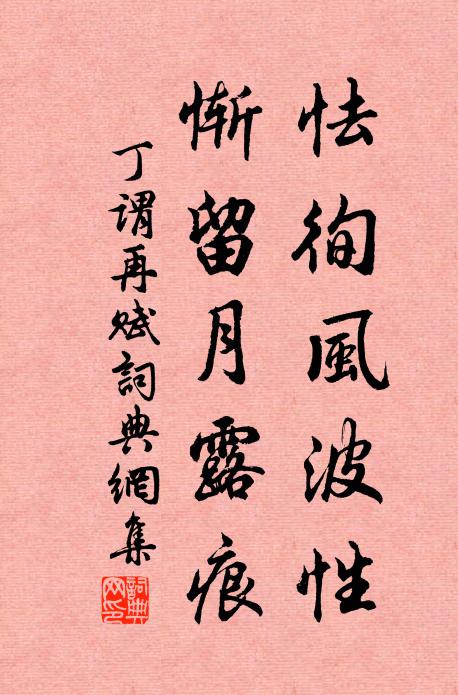 怯徇風波性
慚留月露痕
丁謂再賦詞典網集
詞典网印